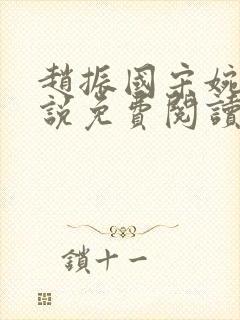 趙振國宋婉
說免費閱讀
鎖十一